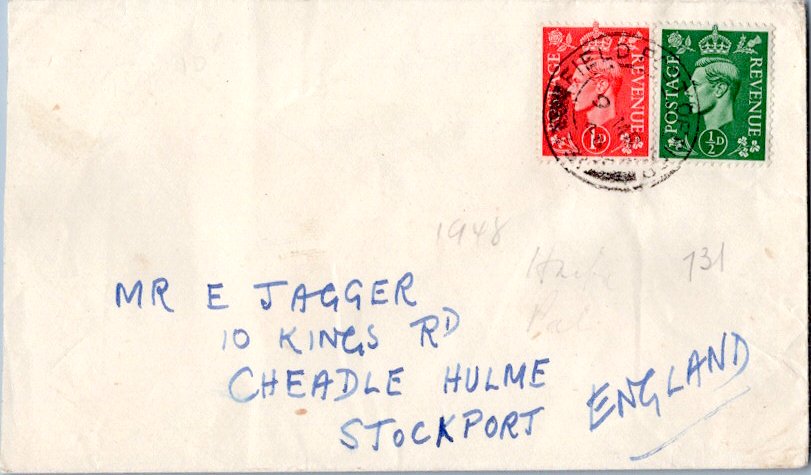 POSTAGE REVENUE
1D
POSTAGE REVENUE
½D
FIELD
1948
731
MR E JAGGER
10 KINGS RD
CHEADLE HULME
STOCKPORT ENGLAND